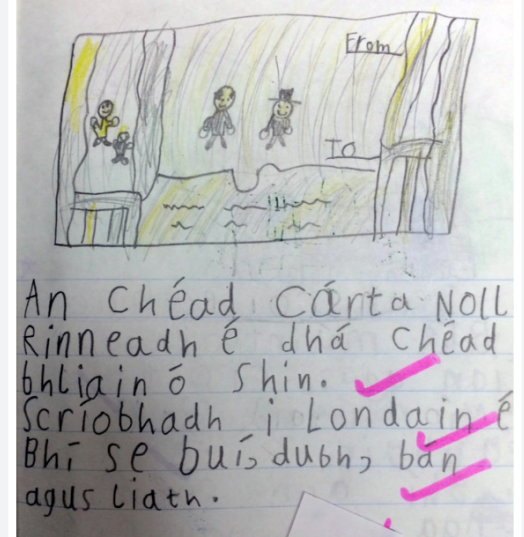 From
To
An Chéad Cárta Noll
Rinneadh é dhá Chéad
bhliain ó Shin.
Scríobhadh i Londain é
Bhí se buí, dubh, bán
agus Liath.